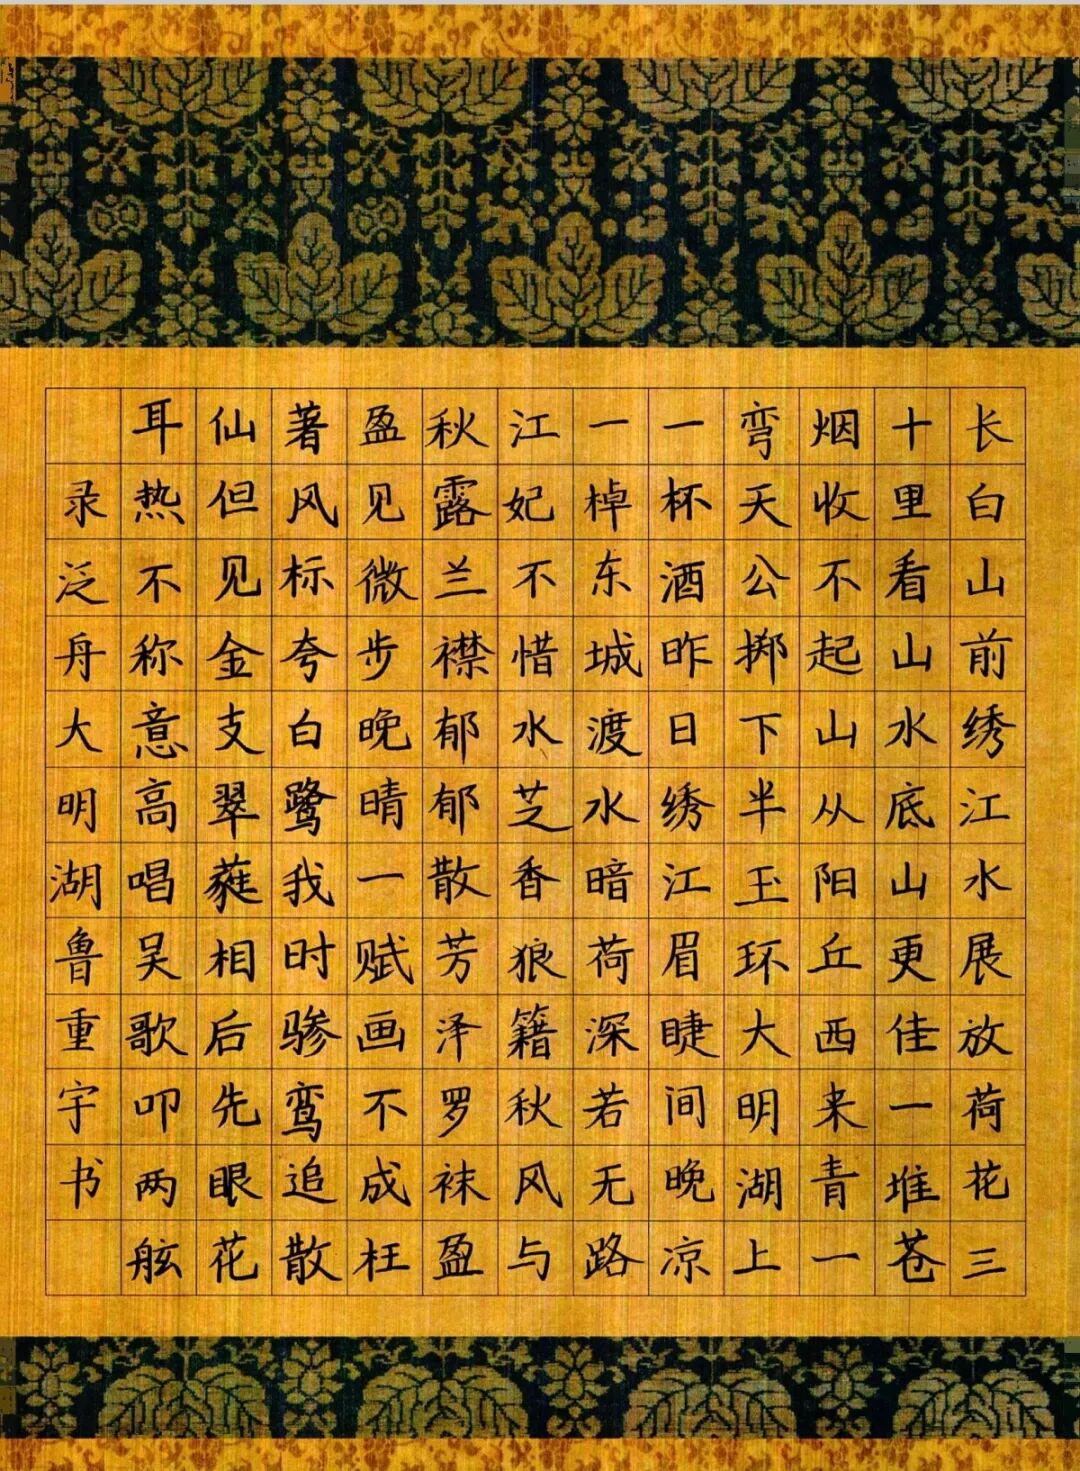 长白山前绣江水展放荷花三
十里看山水底山更佳一堆苍
烟收不起山从阳丘西来青一
弯天公掷下半玉环大明湖上
一杯酒昨日绣江眉睫间晚凉
一棹东城渡水暗荷深若无路
江妃不惜水芝香狼籍秋风与
秋露兰襟郁郁散芳泽罗袜盈
盈见微步晚晴一赋画不成枉
著风标夸白鹭我时骖鸾追散
仙但见金支翠蕤相后先眼花
耳热不称意高唱吴歌叩两舷
录泛舟大明湖鲁重宇书